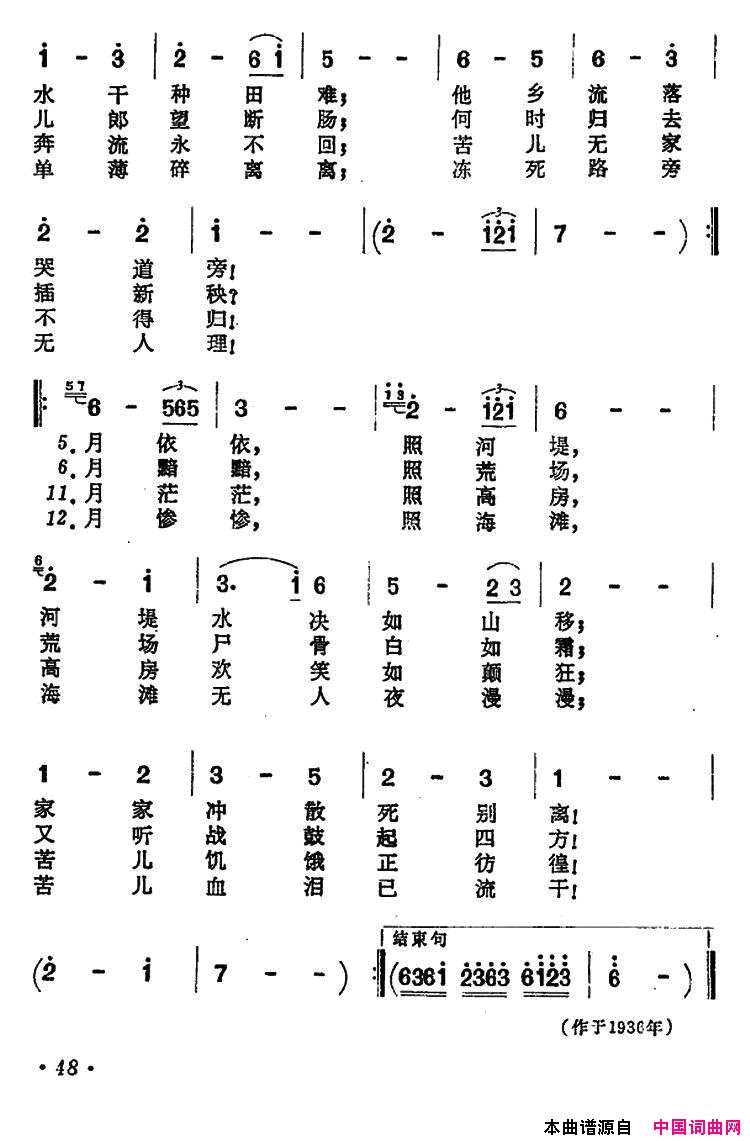 1 - 3 | 2 - 6 1 | 5 - - | 6 - 5 | 6 - 3 |
水 干 种 田 难； 他 乡 流 落
儿 郎 望 断 肠； 何 时 归 去
奔 流 永 不 回； 苦 儿 无 家
单 薄 碎 离 离； 冻 死 路 旁
2 - 2 | 1 - - | (2 - 3 121 | 7 - -) :||
哭 道 旁！
插 新 秧？
不 得 归！
无 人 理！
||: 57 6 - 3 565 | 3 - - | 13 2 - 3 121 | 6 - - |
5. 月 依 依， 照 河 堤，
6. 月 黯 黯， 照 荒 场，
11. 月 茫 茫， 照 高 房，
12. 月 惨 惨， 照 海 滩，
6 2 - 1 | 3. 1 6 | 5 - 2 3 | 2 - - |
河 堤 水 决 如 山 移；
荒 场 尸 骨 白 如 霜；
高 房 欢 笑 如 颠 狂；
海 滩 无 人 夜 漫 漫；
1 - 2 | 3 - 5 | 2 - 3 | 1 - - |
家 家 冲 散 死 别 离！
又 听 战 鼓 起 四 方！
苦 儿 饥 饿 正 彷 徨！
苦 儿 血 泪 已 流 干！
结束句
(2 - 1 | 7 - -) :|| (6361 2363 6123 | 6 -) ||
(作于1936年)
· 48 ·
本曲谱源自 中国词曲网